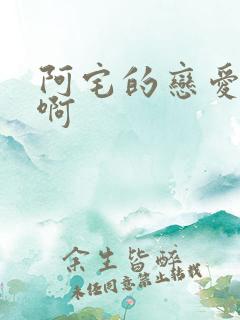 阿宅的戀愛
啊
余生皆醉
未经同意禁止转载